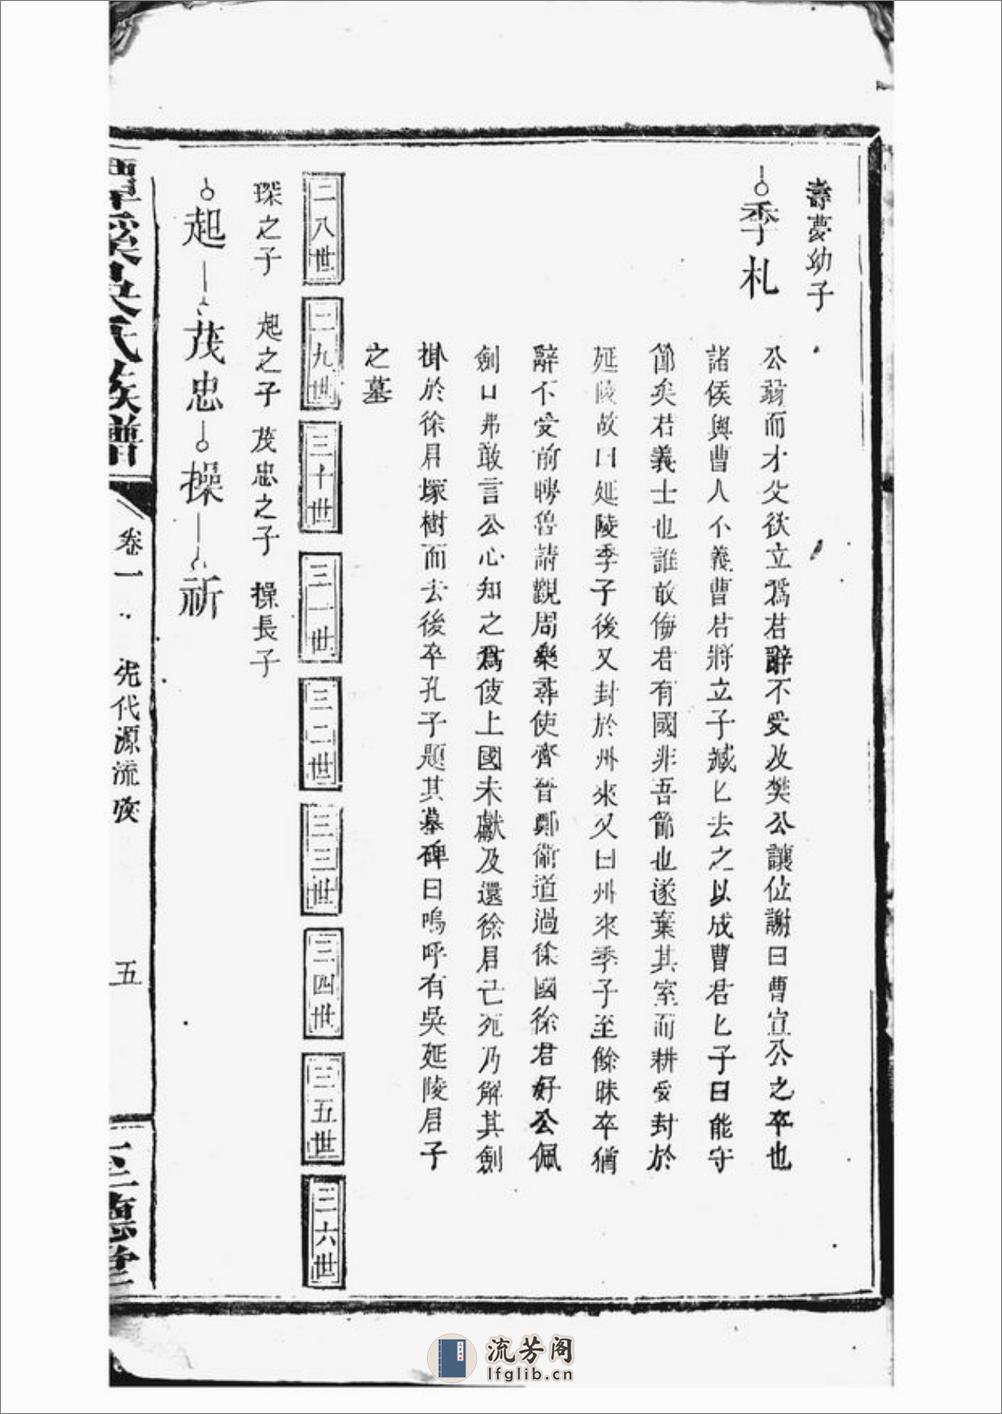 壽夢幼子
季札
公翁而才父欲立爲君辭不受及樊公讓位謝曰曹宣公之卒也
諸侯與曹人不義曹君將立子臧匕去之以成曹君匕子曰能守
節矣君義士也誰敢侮君有國非吾節也遂棄其室而耕受封於
延陵故曰延陵季子後又封於州來又曰州來季子至餘昧卒猶
辭不受前聘魯請觀周樂尋使齊晉鄭衛道過徐國徐君好公佩
劍口弗敢言公心知之爲使上國未獻及還徐君已死乃解其劍
掛於徐君塚樹而去後卒孔子題其墓碑曰嗚呼有吳延陵君子
之墓
二八世
二九世
三十世
三一世
三二世
三三世
三四世
三五世
三六世
琛之子 起之子 茂忠之子 操長子
起 茂忠 操 祈
潭溪吳氏族譜
卷一
先代源流攷
五
至德堂
流芳阁
lfglib.cn